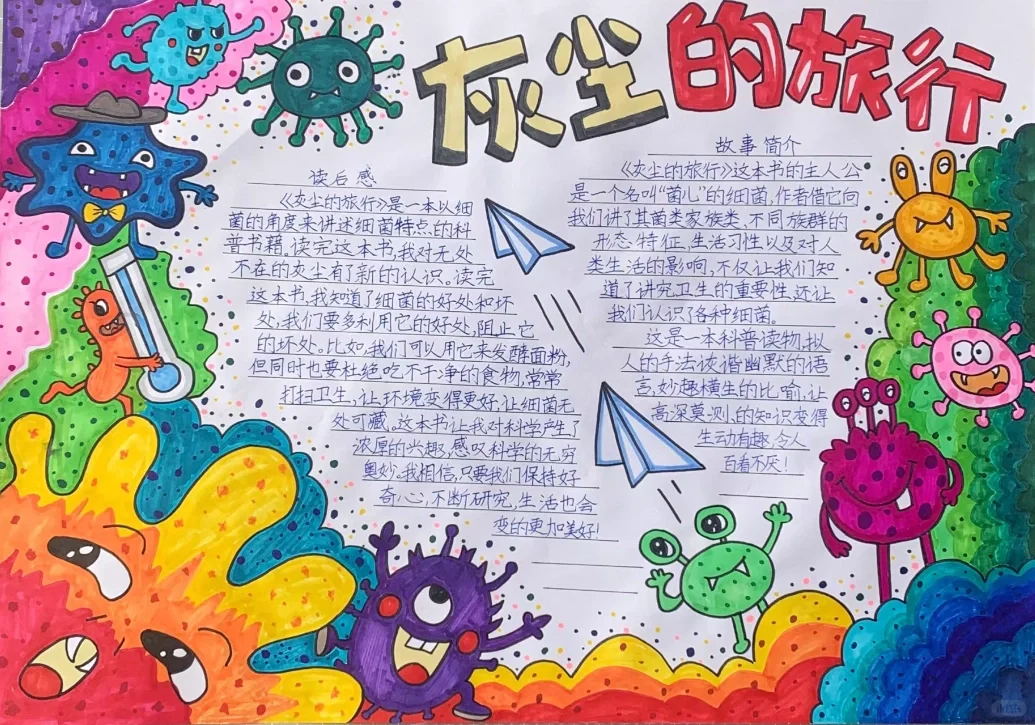 灰尘的旅行
读后感
《灰尘的旅行》是一本以细
菌的角度来讲述细菌特点的科
普书籍。读完这本书,我对无处
不在的灰尘有了新的认识。读完
这本书,我知道了细菌的好处和坏
处,我们要多利用它的好处,阻止它
的坏处。比如,我们可以用它来发酵面粉,
但同时也要杜绝吃不干净的食物,常常
打扫卫生,让环境变得更好,让细菌无
处可藏。这本书让我对科学产生了
浓厚的兴趣,感叹科学的无穷
奥妙。我相信,只要我们保持好
奇心,不断研究,生活也会
变的更加美好!
故事简介
《灰尘的旅行》这本书的主人公
是一个名叫“菌儿”的细菌,作者借它向
我们讲了其菌类家族类、不同族群的
形态特征、生活习性以及对人
类生活的影响,不仅让我们知
道了讲究卫生的重要性,还让
我们认识了各种细菌。
这是一本科普读物,拟
人的手法诙谐幽默的语
言,妙趣横生的比喻,让
高深莫测的知识变得
生动有趣,令人
百看不厌!